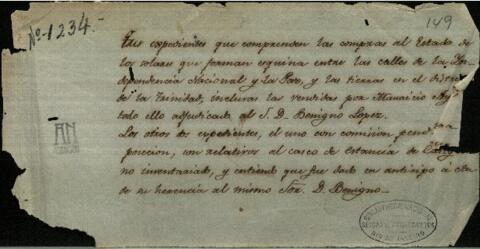 Nº 1234.-
149
Tres expedientes que comprenden las compras al Estado de
los solares que forman esquina entre las calles de la In-
dependencia Nacional y la Paz, y las tierras en el
de la Trinidad, inclusas las vendidas por Mauricio
todo ello adjudicado al S. D. Benigno Lopez.
Los otros dos expedientes, el uno con comision
posicion, son relativos al casco de estancia de
no inventariado, y entiendo que fue dado en anticipo á
de su herencia al mismo Sor. D. Benigno.-
AN
BIBLIOTHECA NACIONAL
RIO DE JANEIRO